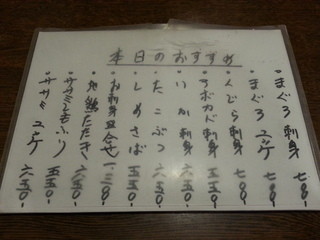 本日のおすすめ
・まぐろ刺身 七八〇-
・まぐろユッケ 七八〇-
・くじら刺身 七八〇-
・アボカド刺身 五五〇-
・いか刺身 六五〇-
・たこぶつ 六五〇-
・しめさば 五五〇-
・お刺身盛合せ 一二三〇-
・地鶏たたき 六五〇-
・ササミ 五五〇-
・ササミユッケ 六五〇-